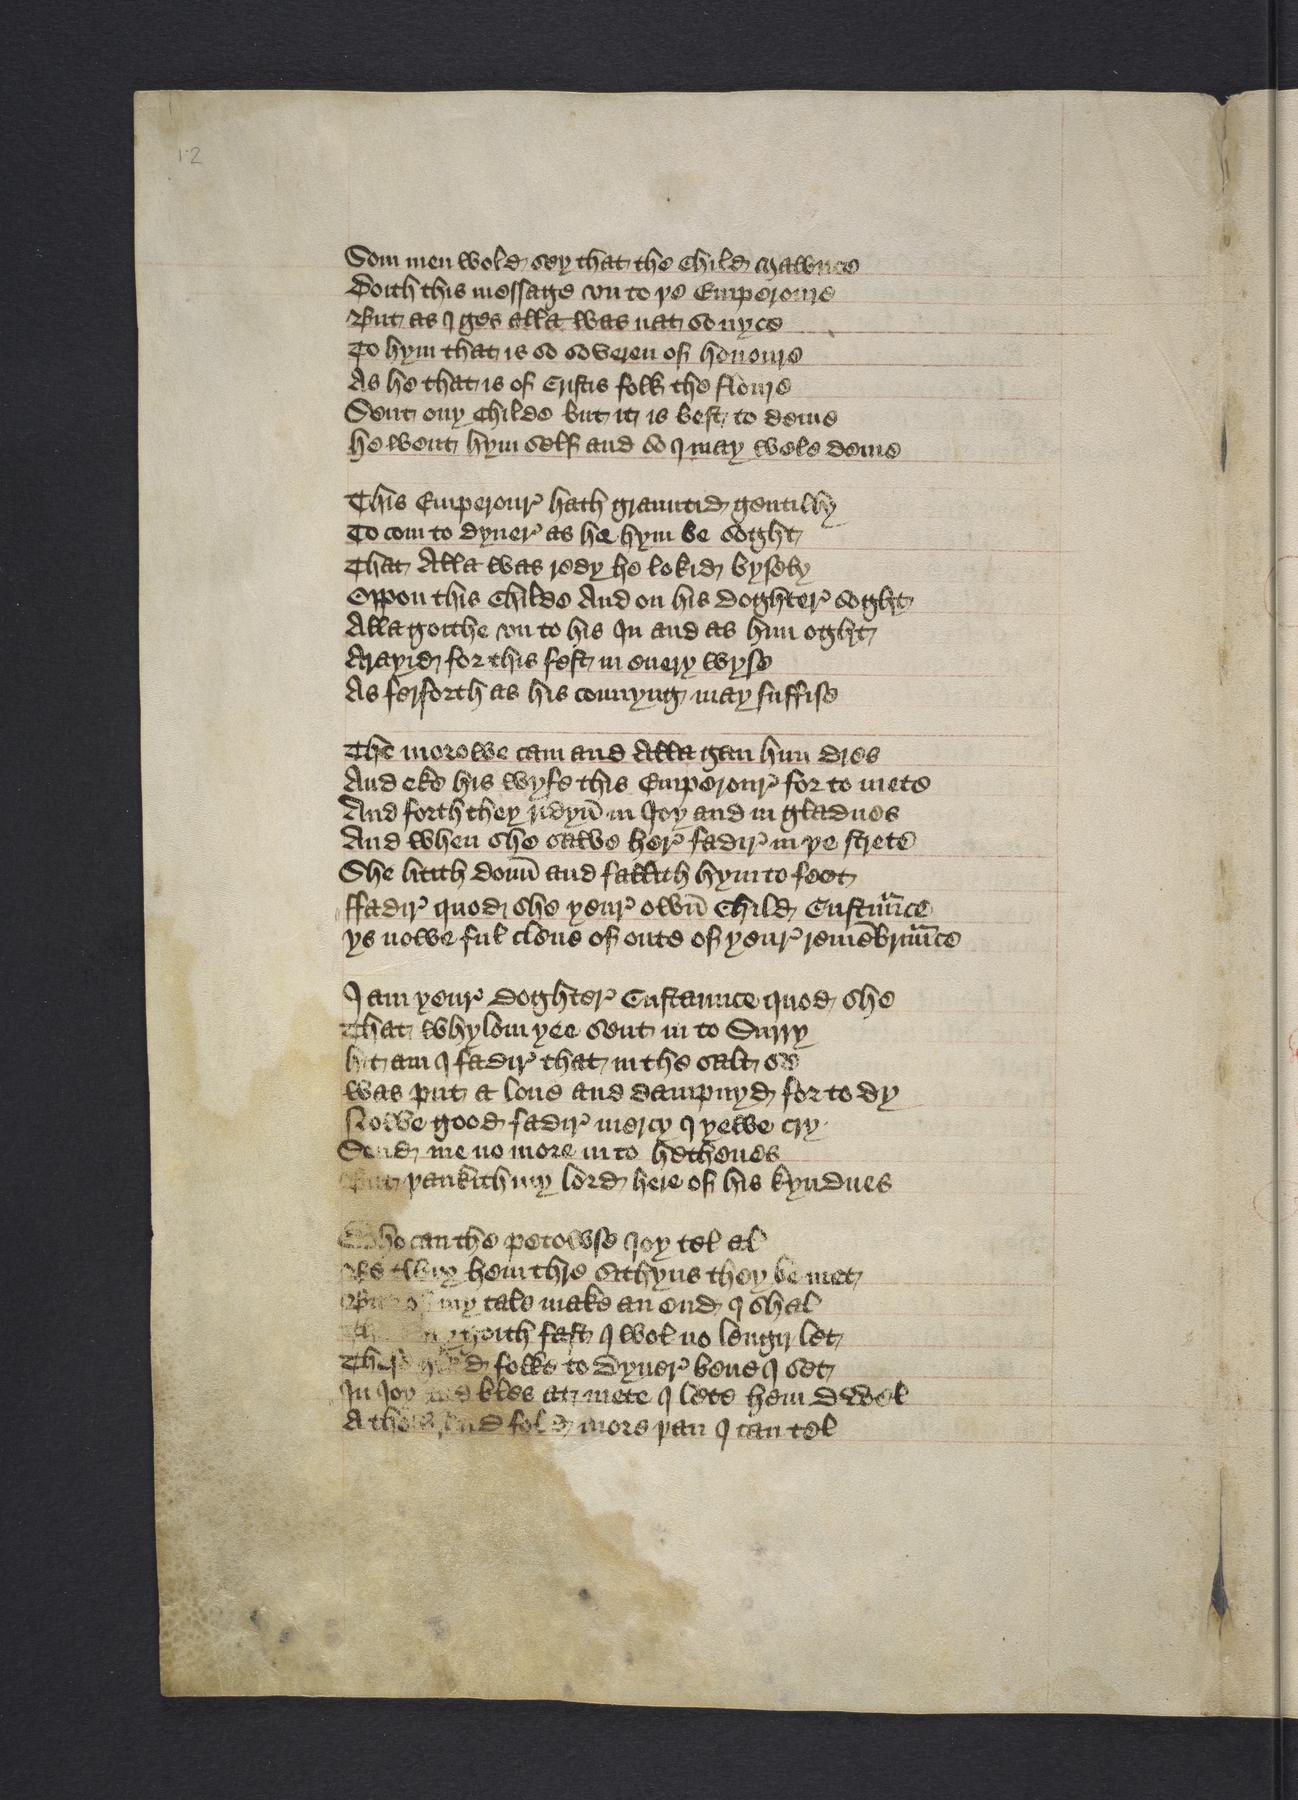 12
Som men wold sey that the Child Mawrice
Doith this message vn to þe Emperoure
But as I ges alla was nat so nyce
To hym that is so soveren of honoure
As he that is of Cristis folk the floure
Sent ony Childe but it is best to deme
he went hym self and so I may wele deme
This Emperour hath grauntid gentilly
To com to dyner as he hym be soght
That Alla was redy he lokid bysely
Oppon this Childe And on his doghter soght
Alla goithe vn to his In and as him oght
Arayid for this fest in euery wyse
As ferforth as his connyng may suffise
The morowe cam and Alla gan him dres
And eke his wyfe this Emperour for to mete
And forth they ridyn̄ in Ioy and in gladnes
And when she sawe her fadir in þe strete
She litith doun̄ and fallith hym to feet
ffadir quod she your own̄ Child Custance
ys nowe ful clene of oute of your remēbrance
I am your doghter Custaunce quod she
That whylom yee sent in to Surry
hit am I fadir that in the salt se
was put a lone and dampnyd for to dy
Nowe good fadir mercy I yewe cry
Send me no more in to hethenes
But þankith my lord here of his kyndnes
Who can the petowse Ioy tel al
be twix hem thre sithyns they be met
But of my tale make an end I shal
goith fast I wol no lengir let
folke to dyner bene I set
In Ioy and bles at mete I lete hem dwel
A thousand fold more þan I can tel